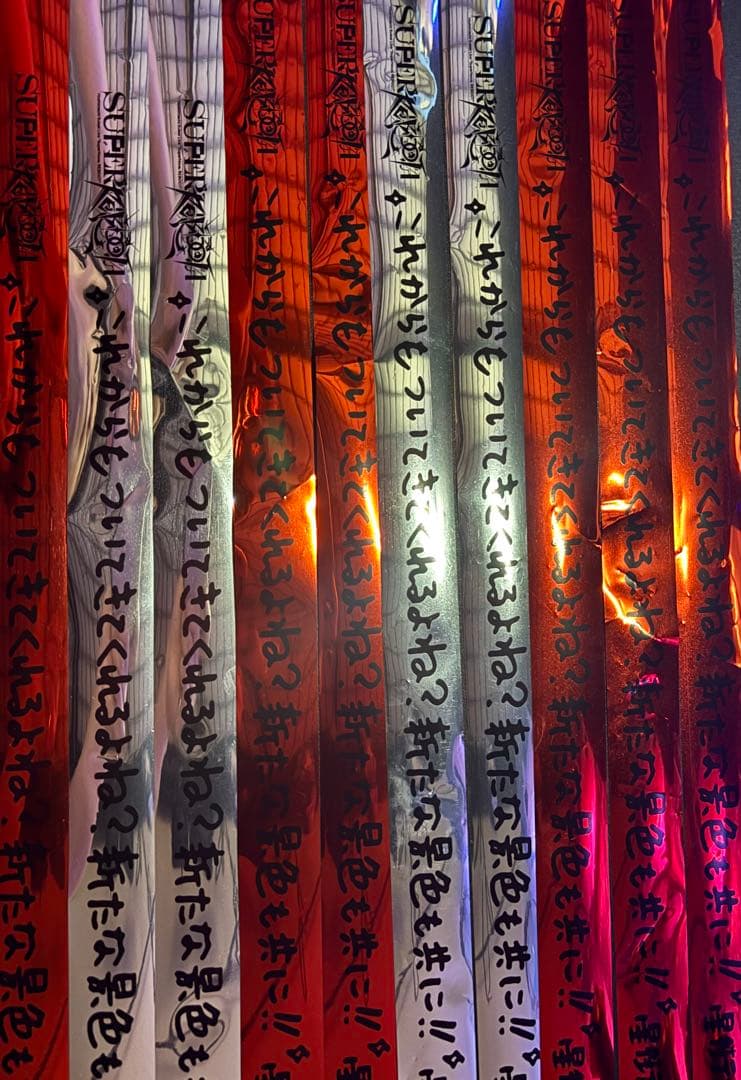 SUPER これからもついてきてくれるよね?新たな景色も
SUPER これからもついてきてくれるよね?新たな景色も
SUPER これからもついてきてくれるよね?新たな景色も
SUPER これからもついてきてくれるよね?新たな景色も共に!!
SUPER これからもついてきてくれるよね?新たな景色も共に!!
SUPER これからもついてきてくれるよね?新たな景色も共に!!
SUPER これからもついてきてくれるよね?新たな景色も共に!!
SUPER これからもついてきてくれるよね?新たな景色も共に!!
SUPER これからもついてきてくれるよね?新たな景色も共に!!
これからもついてきてくれるよね?新たな景色も共に!!